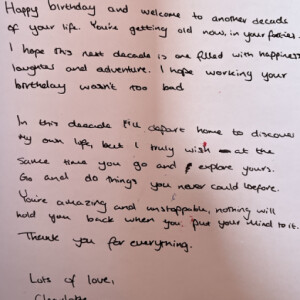 Happy birthday and welcome to another decade
of your life. You're getting old now, in your forties.
I hope this next decade is one filled with happiness
laughter and adventure. I hope working your
birthday wasn't too bad
In this decade I'll depart home to discover
my own life, but I truly wish at the
same time you go and explore yours.
Go and do things you never could before.
You're amazing and unstoppable, nothing will
hold you back when you put your mind to it.
Thank you for everything.
Lots of love,